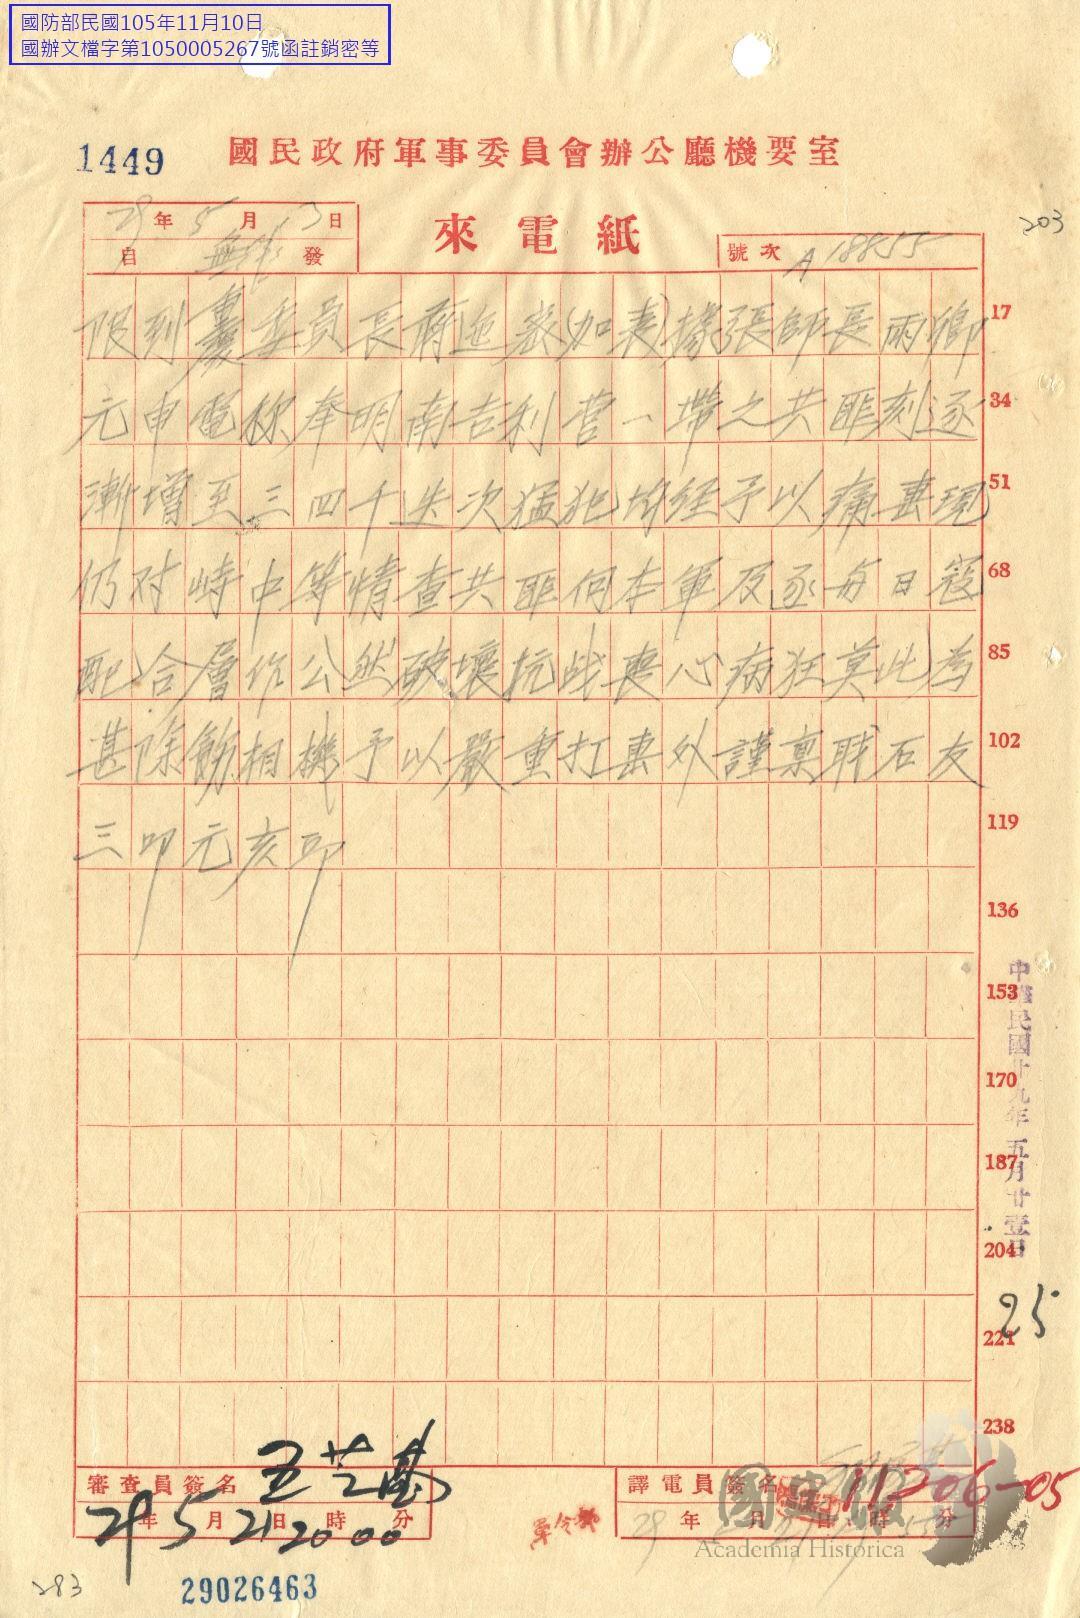 國防部民國105年11月10日
國辦文檔字第1050005267號函註銷密等
1449
國民政府軍事委員會辦公廳機要室
29年5月13日
自 無線 發
來電紙
號次 A 18855
203
限到 委員長蔣 密(加表)據張師長雨卿 17
元申電称奉明南吉利营一帶之共匪刻逐 34
漸增至三四千迭次猛犯均经予以痛击現 51
仍对峙中等情查共匪何本軍及逐每日寇 68
配合層作公然破壞抗战喪心病狂莫此為 85
甚除飭相機予以嚴重打击外謹禀職石友 102
三叩元亥印 119
136
153
170
187
204
221
238
中華民國廿九年五月廿壹日
25
審查員簽名 王芝
29年5月21日20時00分
軍令部
譯電員簽名
29年 月 日 時 分
11206-05
國史館
Academia Historica
283
29026463